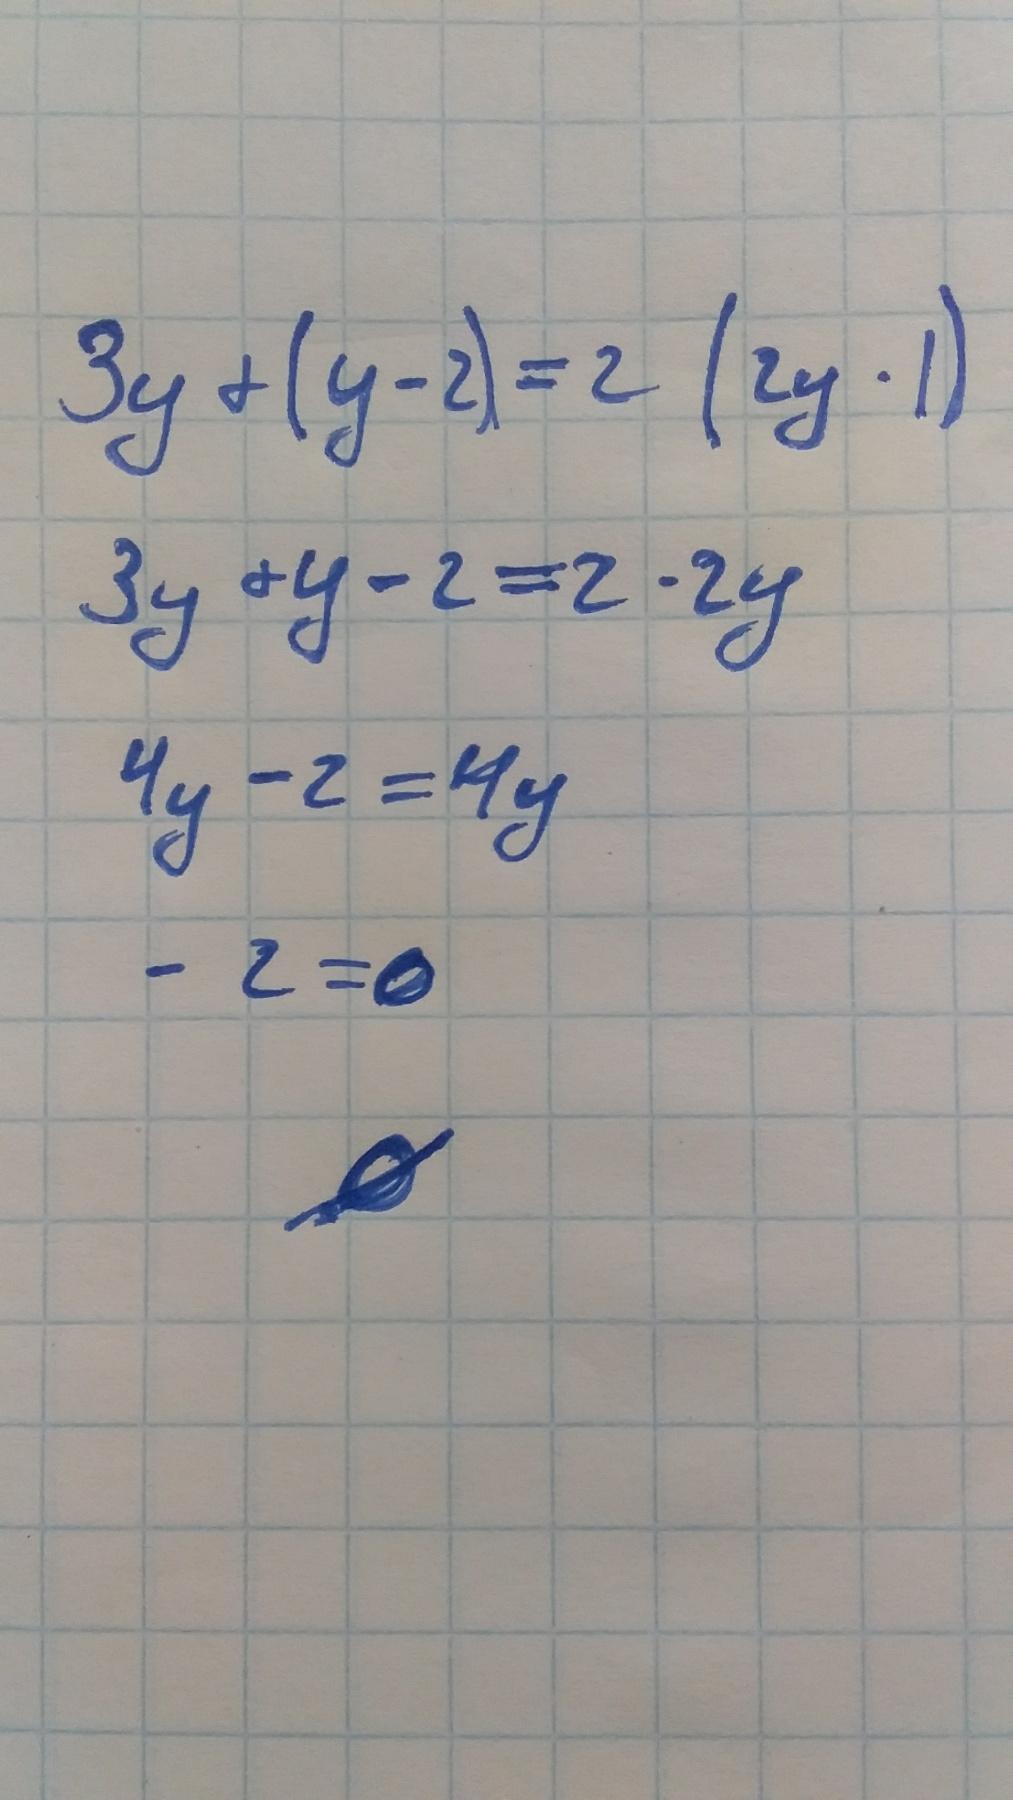 3y + (y - 2) = 2 (2y · 1)
3y + y - 2 = 2 · 2y
4y - 2 = 4y
- 2 = 0
∅